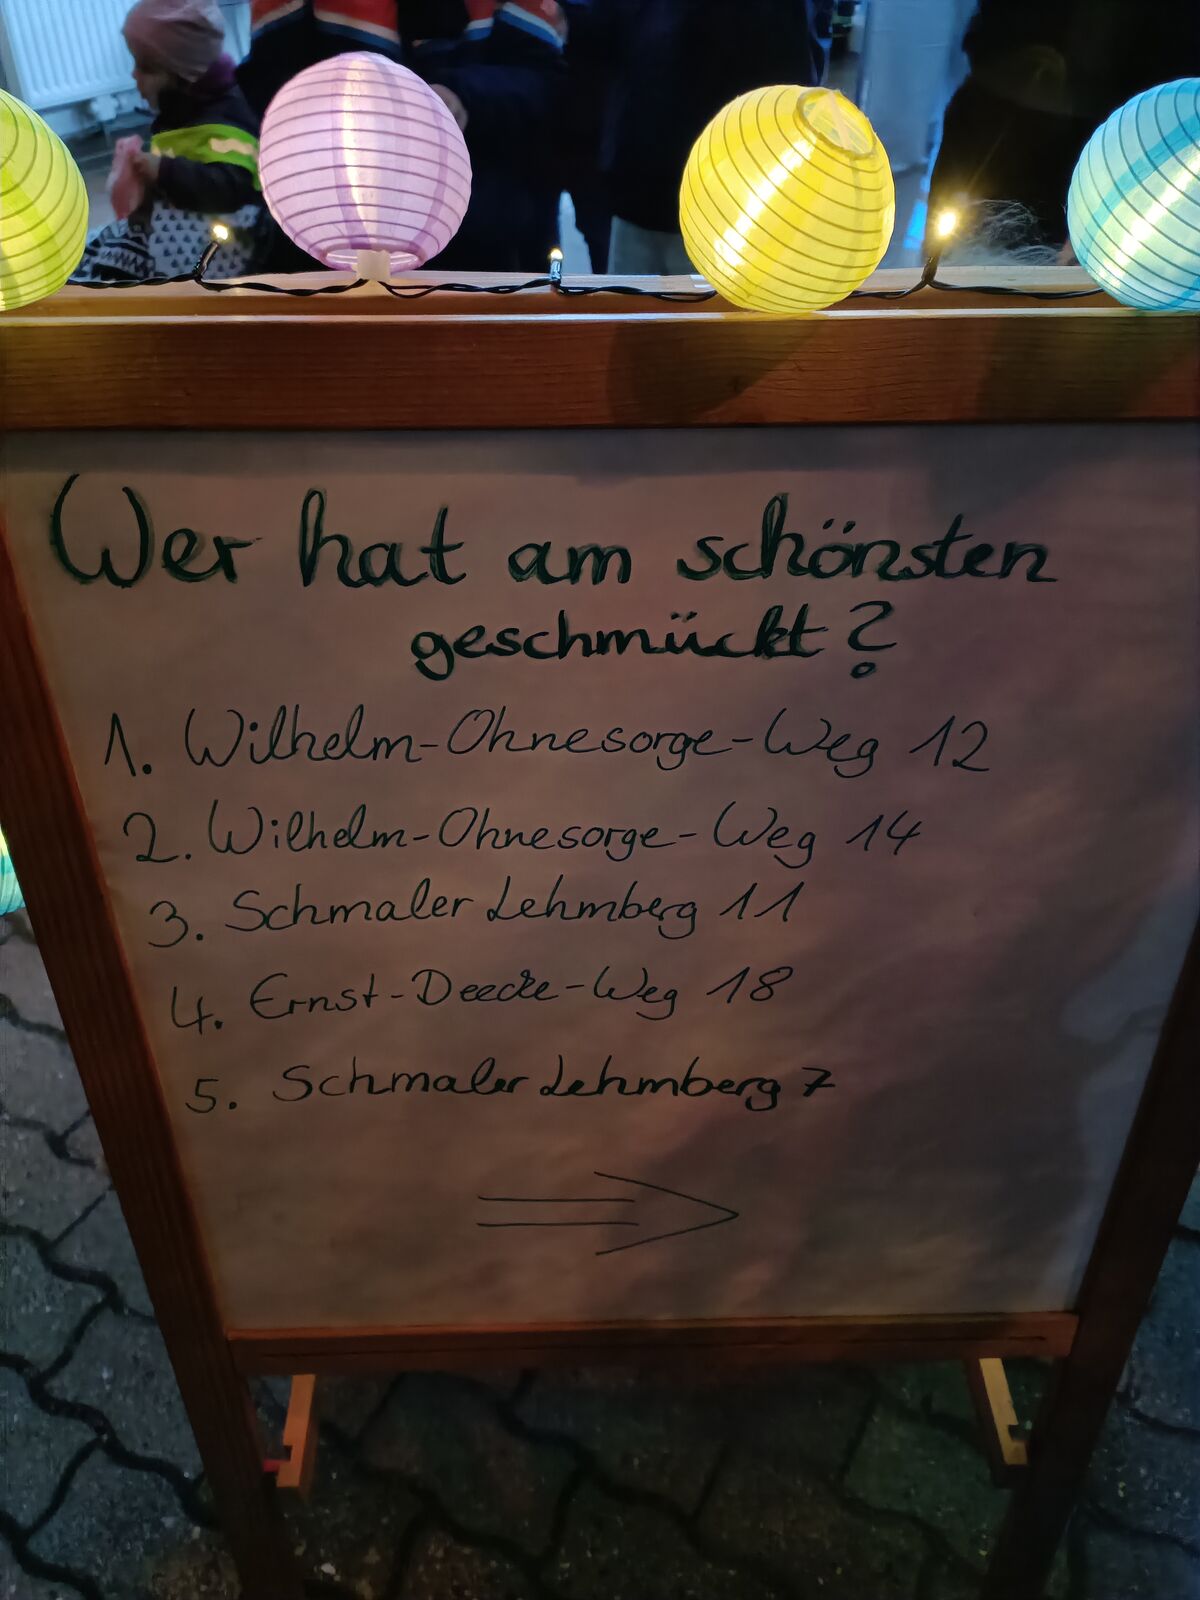 Wer hat am schönsten
geschmückt?
1. Wilhelm-Ohnesorge-Weg 12
2. Wilhelm-Ohnesorge-Weg 14
3. Schmaler Lehmberg 11
4. Ernst-Deecke-Weg 18
5. Schmaler Lehmberg 7